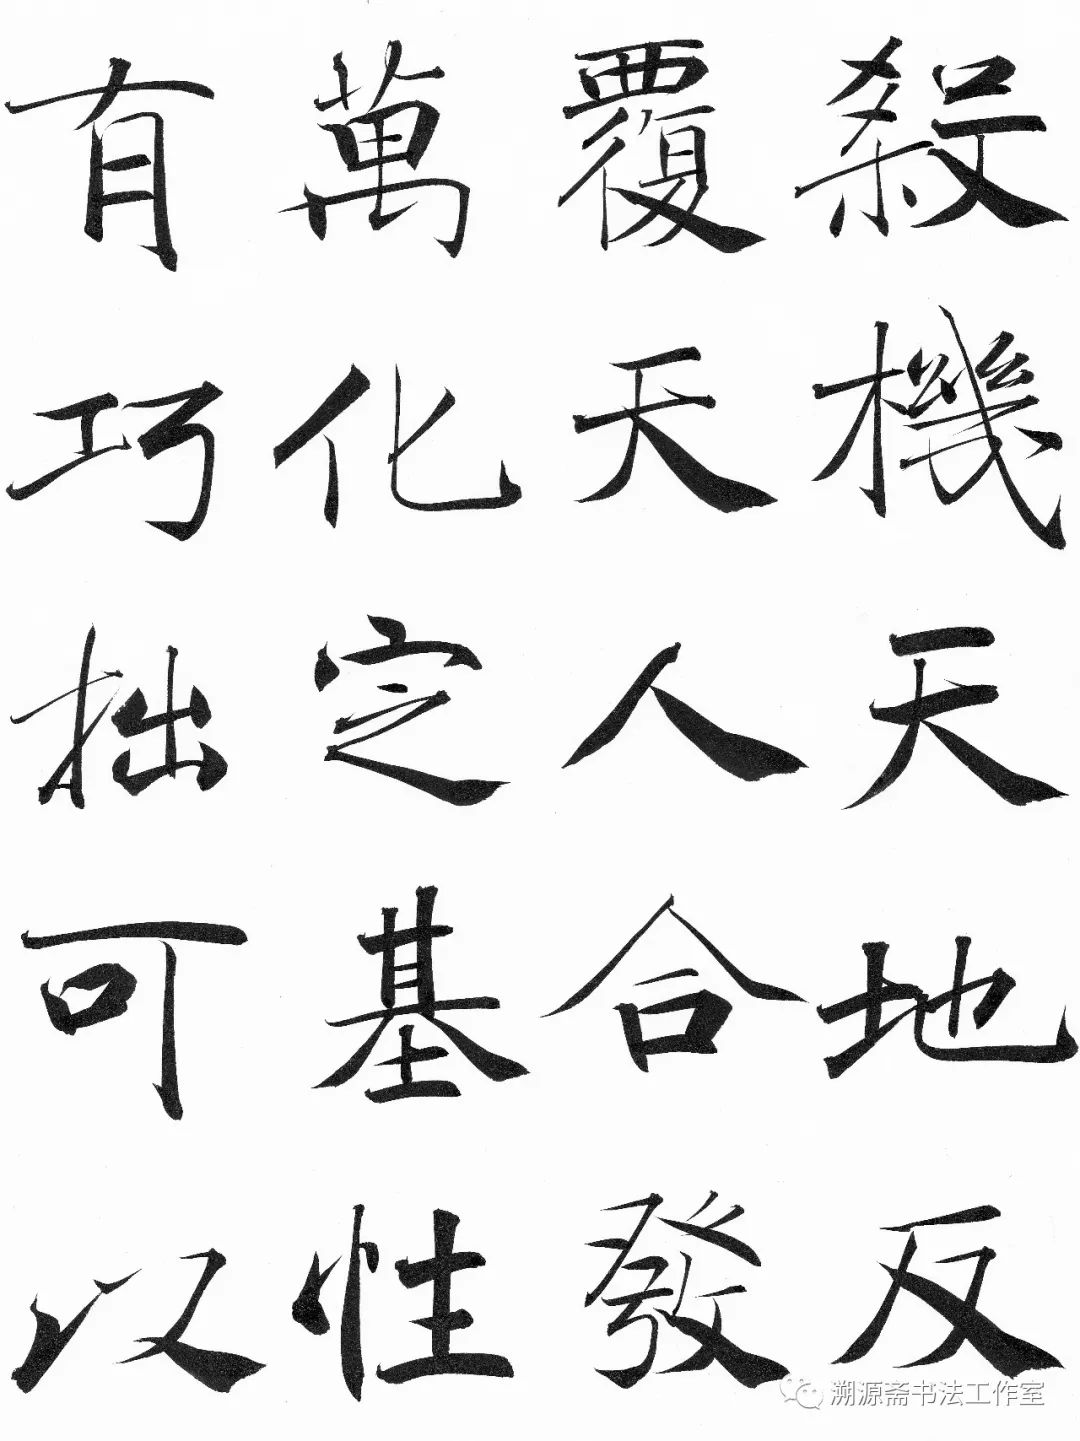 殺機天地反
覆天人合發
萬化定基性
有巧拙可以
溯源斋书法工作室